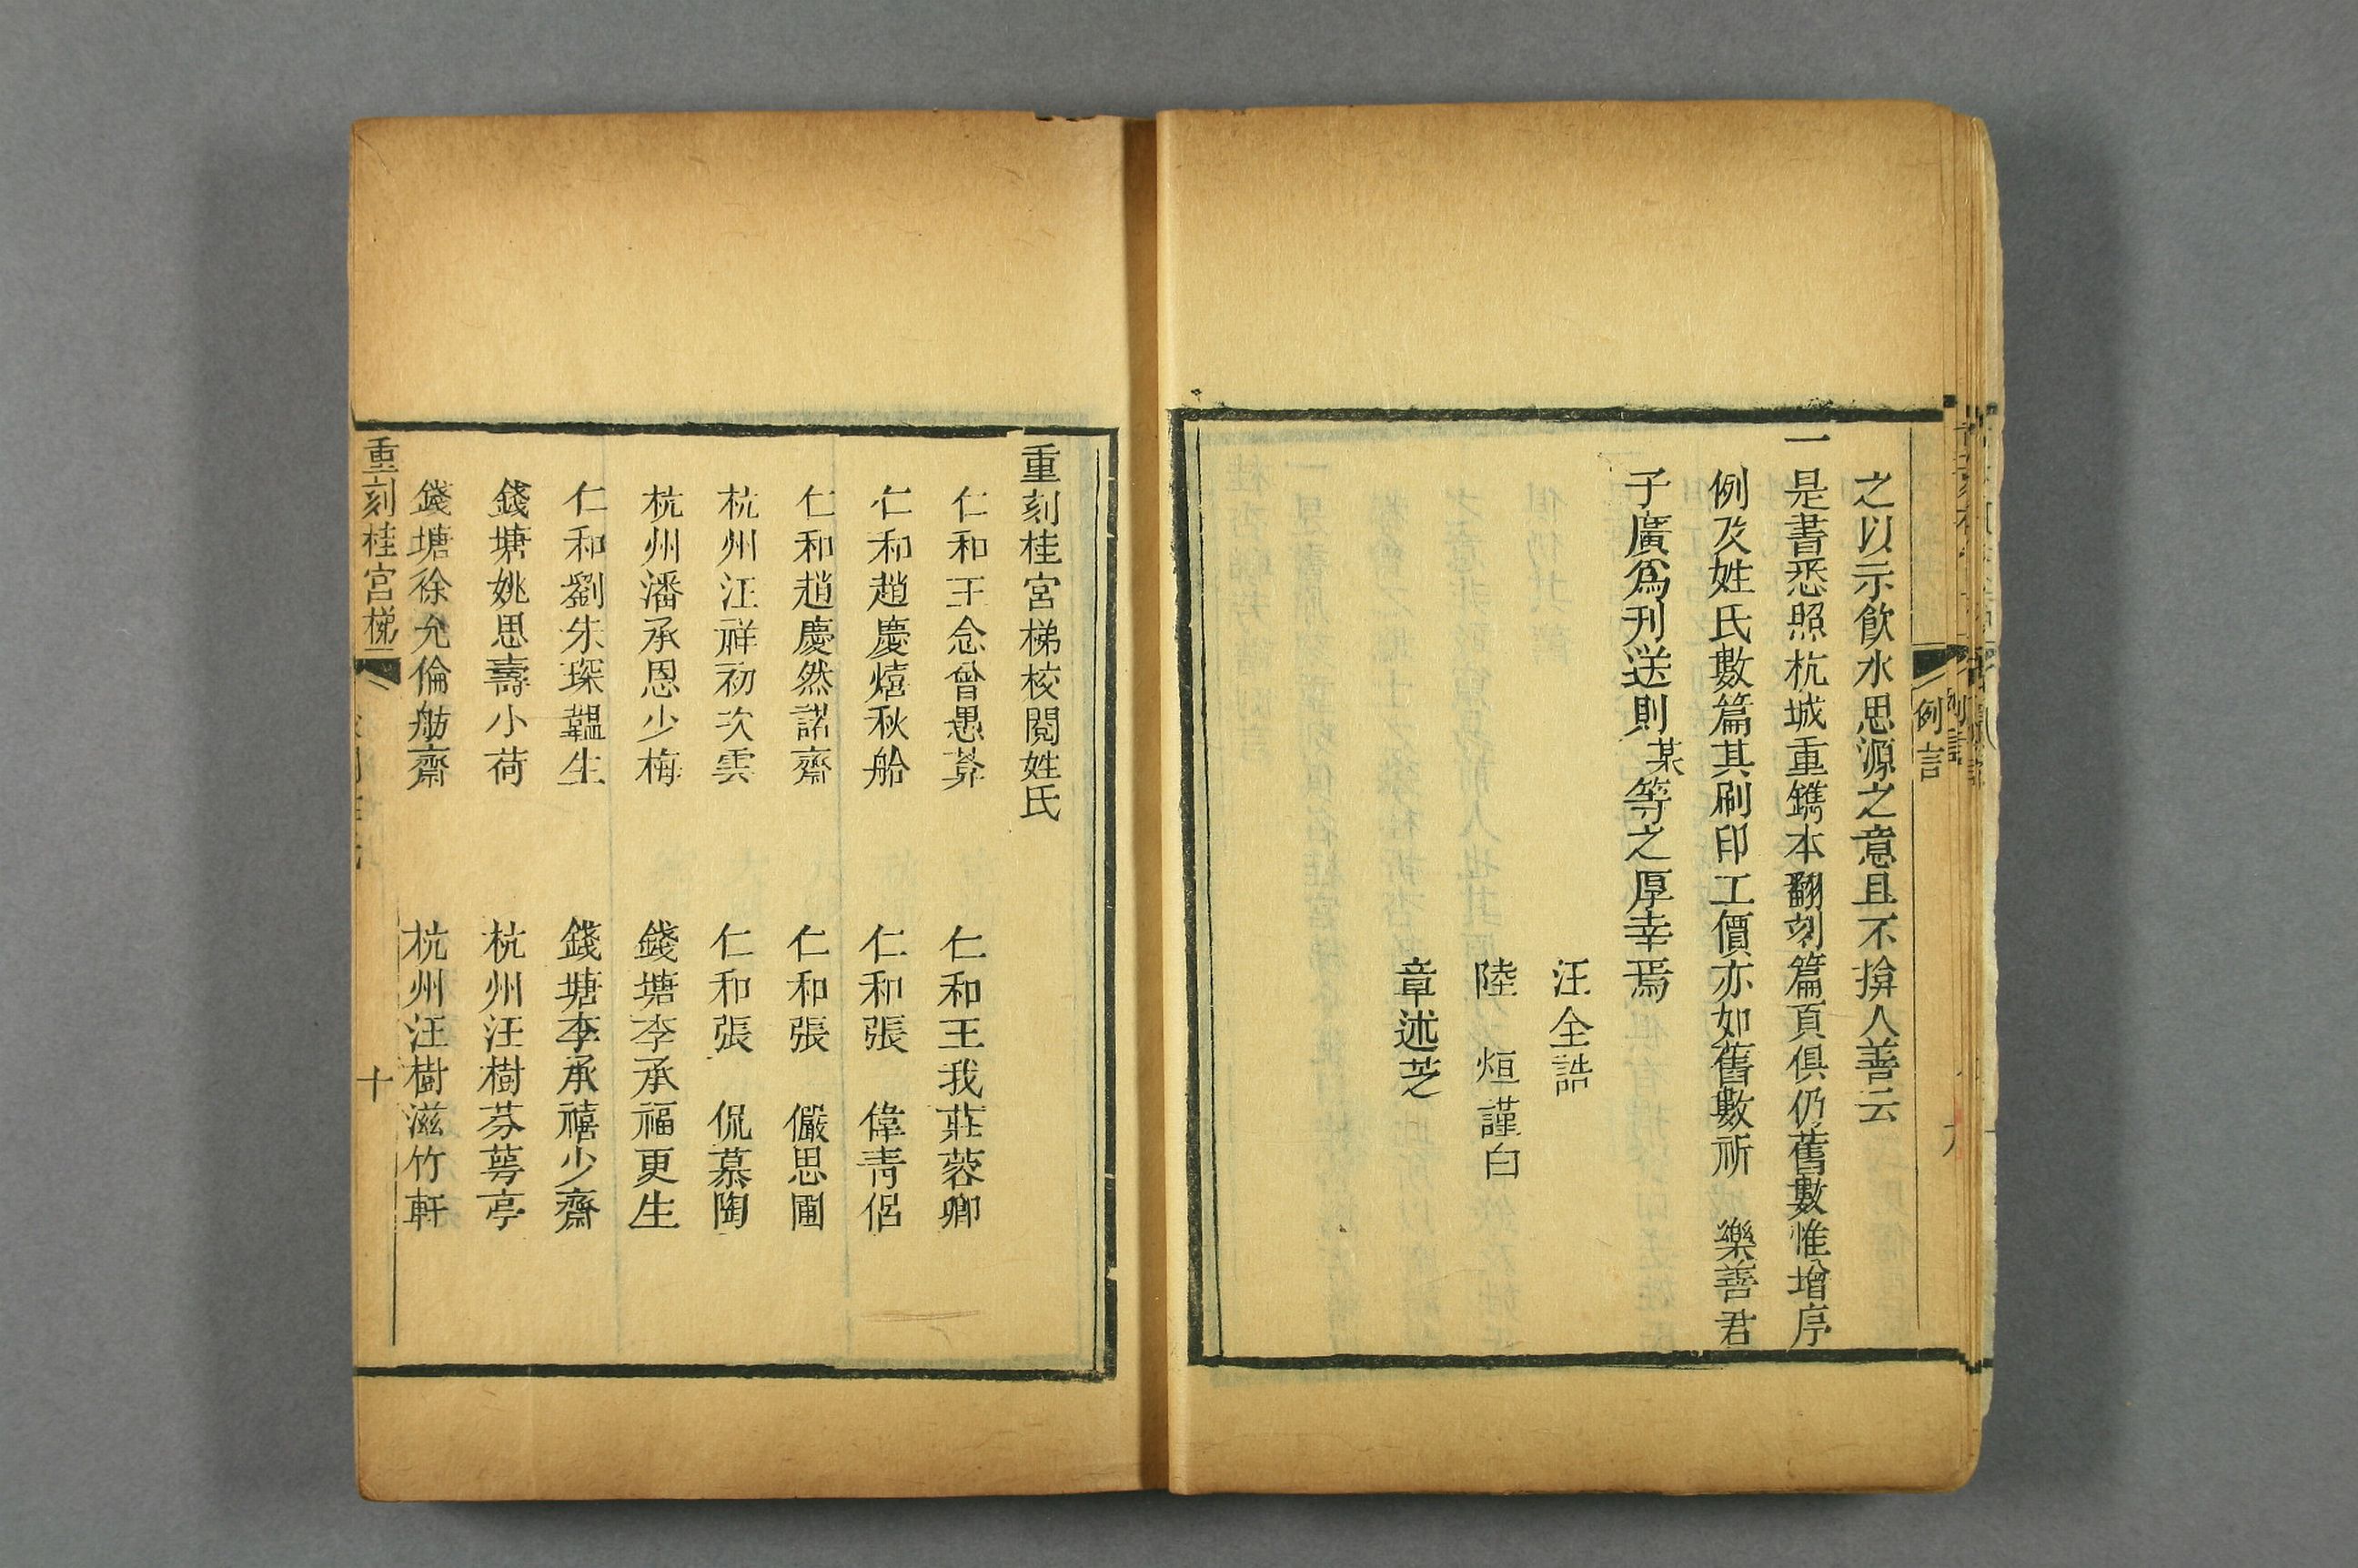 例言
之以示飲水思源之意且不揜人善云
一是書悉照杭城重鐫本翻刻篇頁俱仍舊數惟增序
例及姓氏數篇其刷印工價亦如舊數祈　樂善君
子廣爲刊送則某等之厚幸焉
汪全誥
陸　烜謹白
章述芝
重刻桂宮梯校閱姓氏
仁和王念曾愚莽　仁和王我莊蓉卿
仁和趙慶熺秋舲　仁和張　偉靑侶
仁和趙慶然諾齋　仁和張　儼思圃
杭州汪祥初次雲　仁和張　侃慕陶
杭州潘承恩少梅　錢塘李承福更生
仁和劉朱琛韞生　錢塘李承禧少齋
錢塘姚思壽小荷　杭州汪樹芬萼亭
錢塘徐允倫舫齋　杭州汪樹滋竹軒
重刻桂宮梯　十